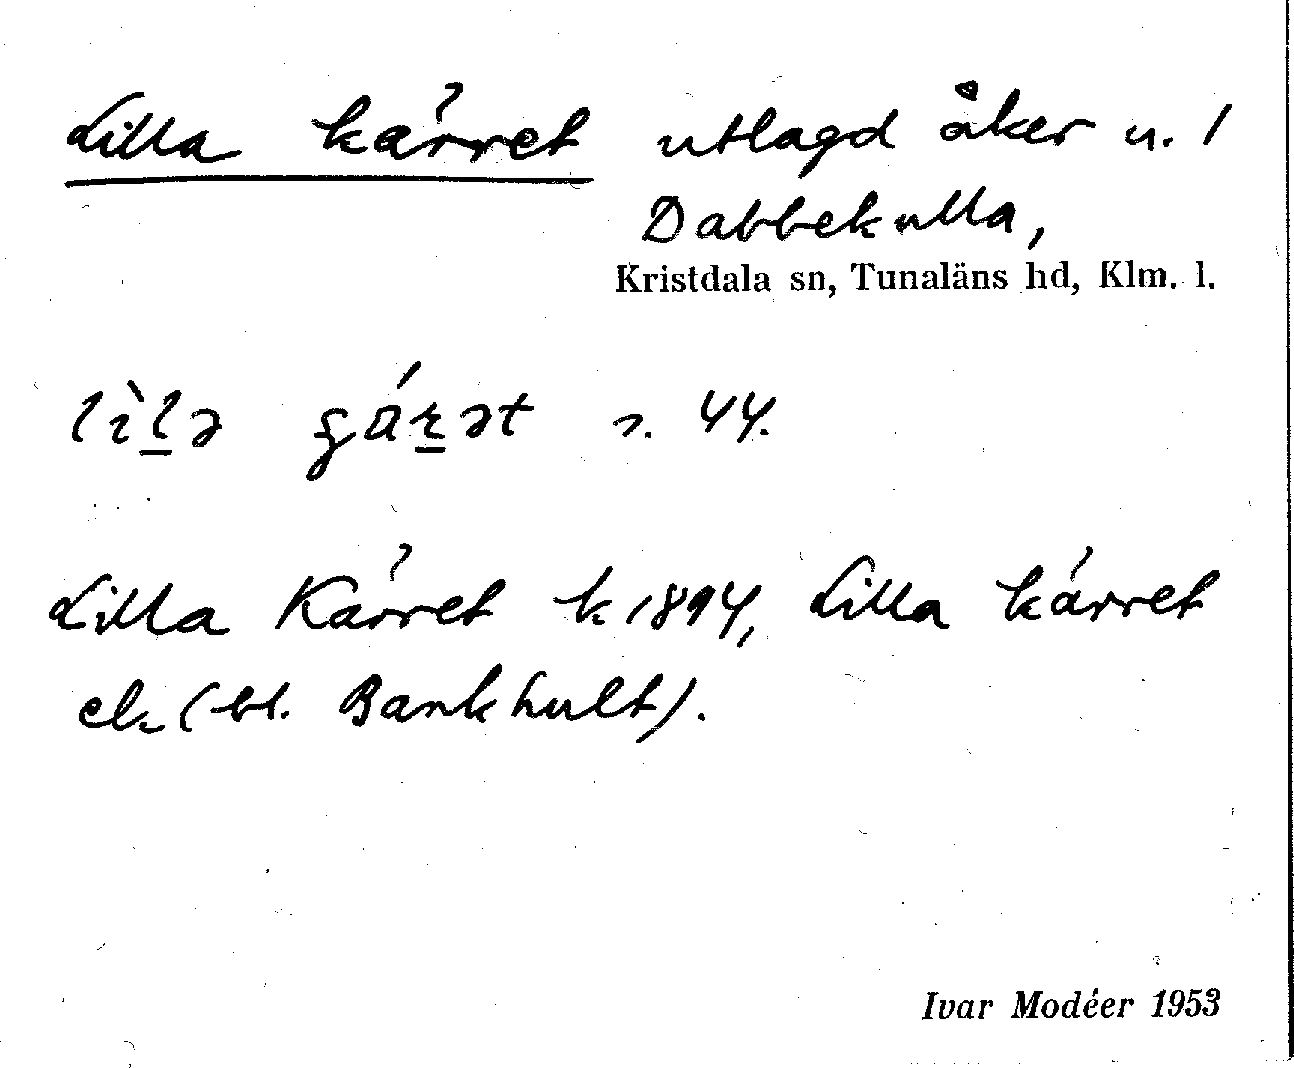 Lilla kärret utlagd åker u. 1
Dabbekulla,
Kristdala sn, Tunaläns hd, Klm. l.
lìlə gáɽət n. 44.
Lilla Kärret k 1894, Lilla kärret
ek (bl. Bankhult).
Ivar Modéer 1953